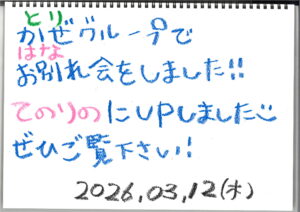 とり
かぜグループで
はな
お別れ会をしました!!
てのりのにUPしました
ぜひご覧下さい!
2026,03,12(木)